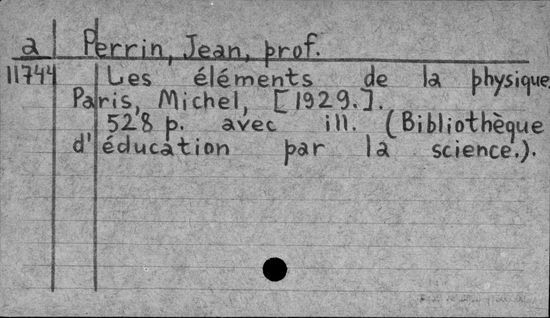 a Perrin, Jean, prof.
11744 Les éléments de la physique.
Paris, Michel, [1929.].
528 p. avec ill. (Bibliothèque
d'éducation par la science.).